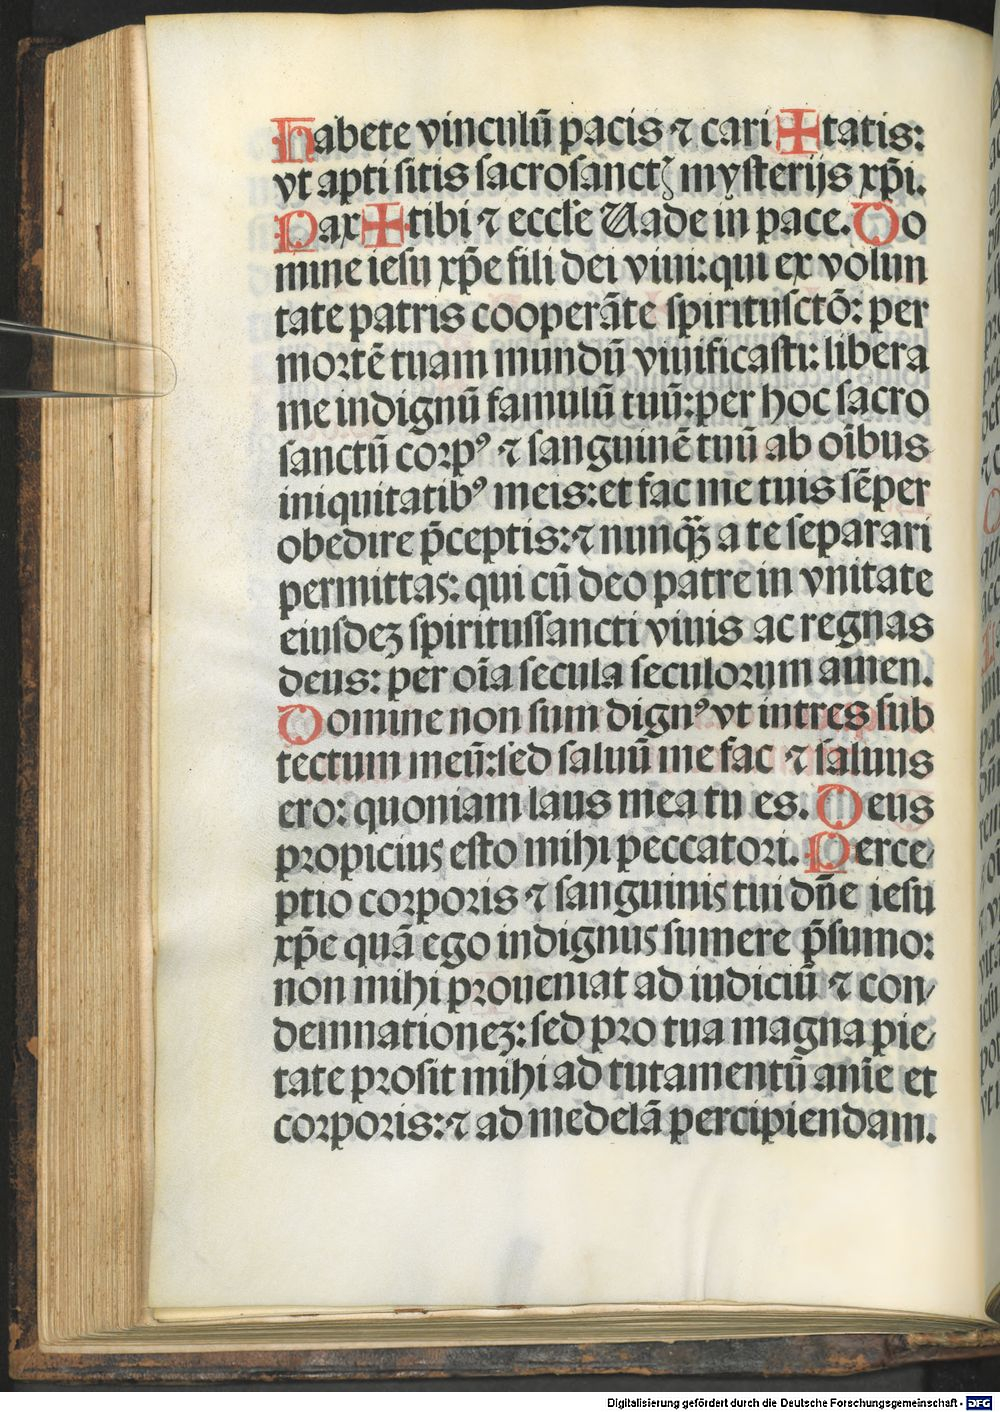 Habete vinculū pacis ⁊ cari ✠ tatis:
vt apti sitis sacrosanctꝭ mysterijs xp̄i.
Pax ✠ tibi ⁊ eccl̄e Uade in pace. Do
mine iesu xp̄e fili dei viui: qui ex volun
tate patris cooperāte spiritusctō: per
mortē tuam mundū viuificasti: libera
me indignū famulū tuū: per hoc sacro
sanctū corpꝰ ⁊ sanguinē tuū ab oībus
iniquitatibꝰ meis: et fac me tuis sēper
obedire p̄ceptis: ⁊ nunqꝫ a te separari
permittas: qui cū deo patre in vnitate
eiusdeꝫ spiritussancti viuis ac regnas
deus: per oīa secula seculorum amen.
Domine non sum dignꝰ vt intres sub
tectum meū: sed saluū me fac ⁊ saluus
ero: quoniam laus mea tu es. Deus
propicius esto mihi peccatori. Perce/
ptio corporis ⁊ sanguinis tui dn̄e iesu
xp̄e quā ego indignus sumere p̄sumo:
non mihi proueniat ad iudiciū ⁊ con/
demnationeꝫ: sed pro tua magna pie/
tate prosit mihi ad tutamentū anīe et
corporis: ⁊ ad medelā percipiendam.
Digitalisierung gefördert durch die Deutsche Forschungsgemeinschaft - DFG